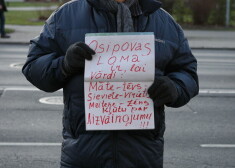 Osipovas
LOMA
ir, lai
vārdi
Māte-tēvs
Sieviete-vīrietis
Meitene-zēns
kļūtu par
Aizvainojumu
!!!